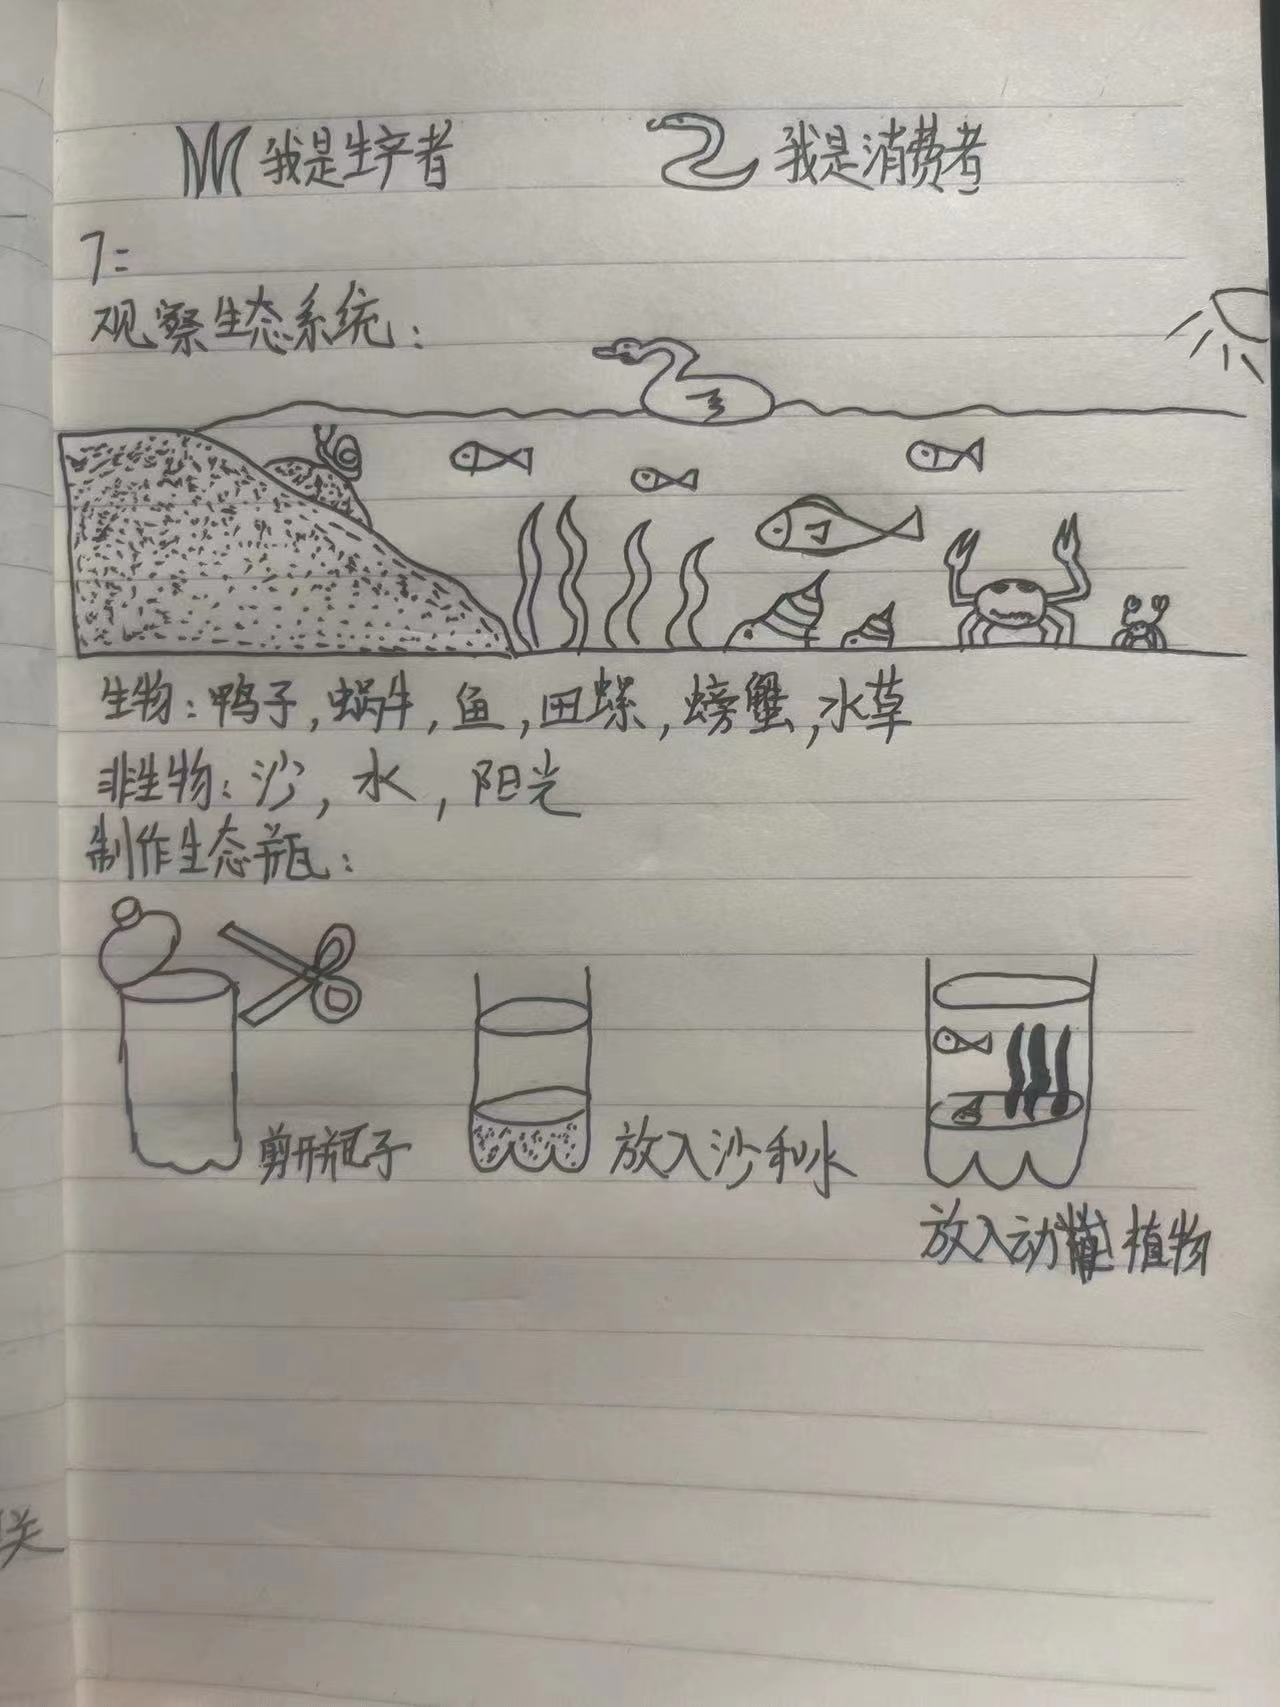 我是生产者 我是消费者
7:
观察生态系统：
生物：鸭子，蜗牛，鱼，田螺，螃蟹，水草
非生物：沙，水，阳光
制作生态瓶：
剪开瓶子 放入沙和水
放入动 植物
关